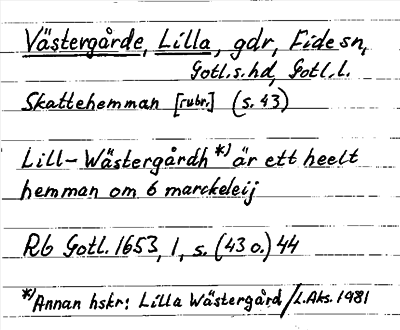 Västergårde, Lilla, gdr, Fide sn,
Gotl.s.hd, Gotl.l.
Skattehemman [rubr.] (s. 43)
Lill-Wästergårdh *) är ett heelt
hemman om 6 marckeleij
Rb Gotl. 1653, 1, s. (43 o.) 44
*) Annan hskr: Lilla Wästergård / L.Aks. 1981